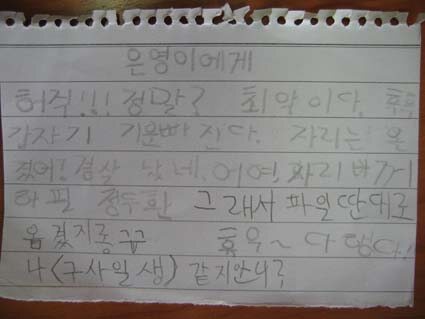 은영이에게
허적!!! 정말? 최악이다. 흑흑
갑자기 기운빠진다. 자리는 은
겼어! 결상 났네. 어여, 자리 바
하필 정두환 그래서 파일딴대로
옴겼지롱 ㄲㄲ 휴우~ 다행다!
나〈구사일생〉 같지안니?